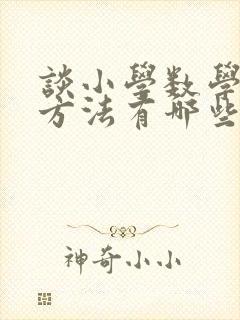 談小學数學
方法有哪些
神奇小小